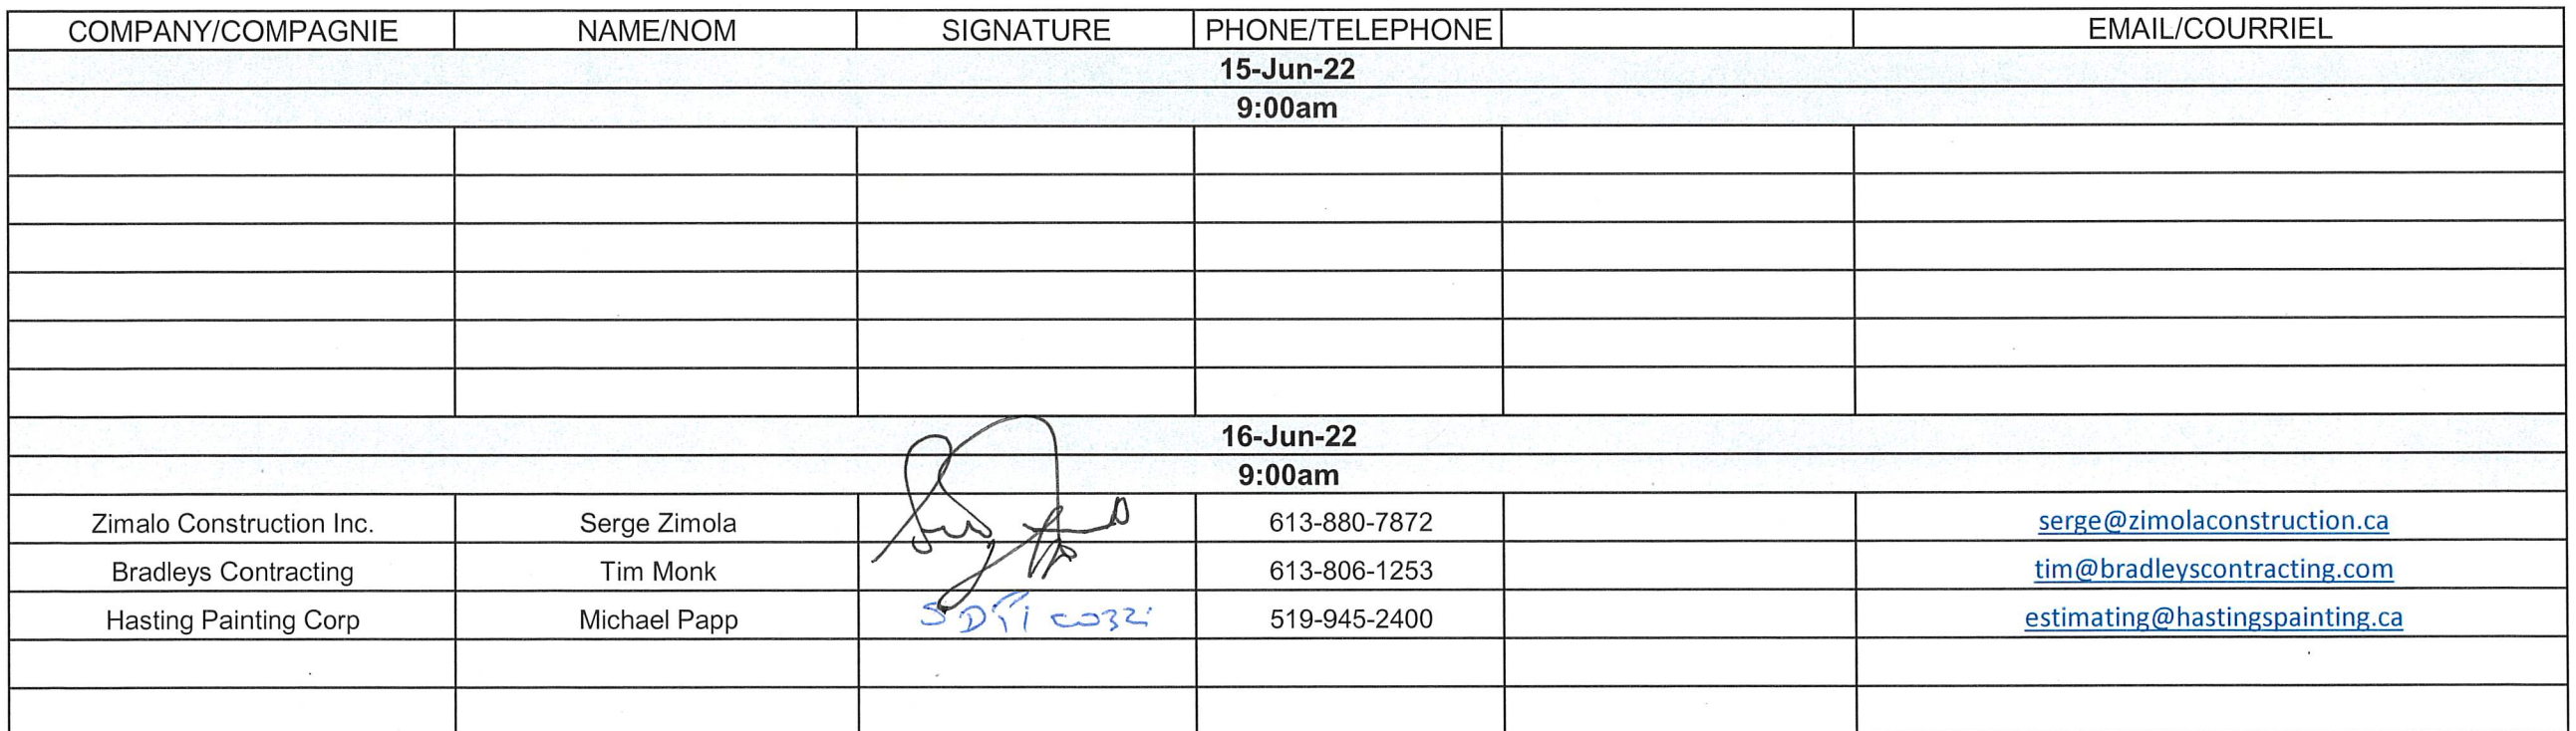 COMPANY/COMPAGNIE NAME/NOM SIGNATURE PHONE/TELEPHONE EMAIL/COURRIEL
15-Jun-22
9:00am
16-Jun-22
9:00am
Zimalo Construction Inc. Serge Zimola 613-880-7872 serge@zimolaconstruction.ca
Bradleys Contracting Tim Monk 613-806-1253 tim@bradleyscontracting.com
Hasting Painting Corp Michael Papp 519-945-2400 estimating@hastingspainting.ca